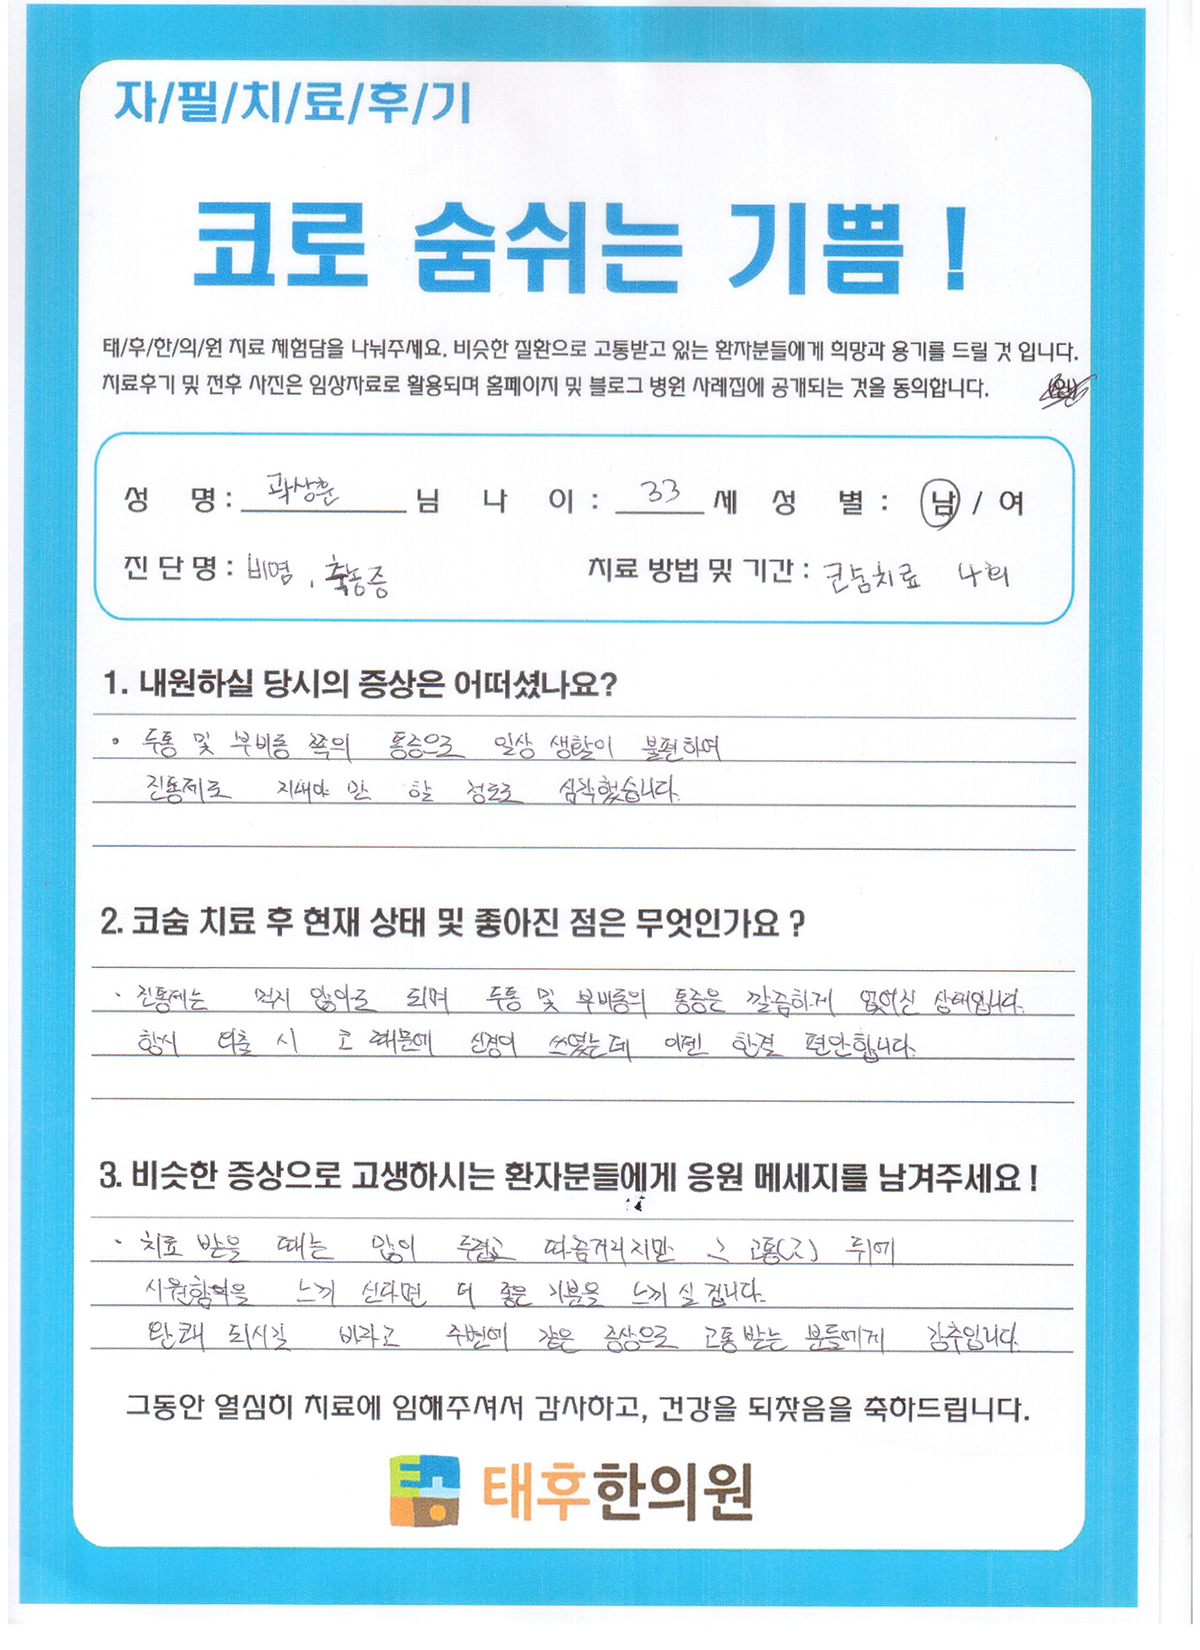 자/필/치/료/후/기
코로 숨쉬는 기쁨 !
태/후/한/의/원 치료 체험담을 나눠주세요. 비슷한 질환으로 고통받고 있는 환자분들에게 희망과 용기를 드릴 것 입니다.
치료후기 및 전후 사진은 임상자료로 활용되며 홈페이지 및 블로그 병원 사례집에 공개되는 것을 동의합니다.
성 명 : 곽상훈 님 나 이 : 33 세 성 별 : 남 / 여
진 단 명 : 비염, 축농증 치료 방법 및 기간 : 코숨치료 4회
1. 내원하실 당시의 증상은 어떠셨나요?
· 두통 및 부비동 쪽의 통증으로 일상 생활이 불편하여
진통제로 지내야 만 할 정도로 심각했습니다.
2. 코숨 치료 후 현재 상태 및 좋아진 점은 무엇인가요 ?
· 진통제는 먹지 않아도 되며 두통 및 부비동의 통증은 깔끔하게 없어진 상태입니다.
항시 외출 시 코 때문에 신경이 쓰였는데 이젠 한결 편안합니다.
3. 비슷한 증상으로 고생하시는 환자분들에게 응원 메세지를 남겨주세요 !
· 치료 받을 때는 많이 두렵고 따끔거리지만 그 고통 뒤에
시원함을 느끼 신다면 더 좋은 기분을 느끼 실 겁니다.
완쾌 되시길 바라고 주변에 같은 증상으로 고통 받는 분들에게 강추입니다.
그동안 열심히 치료에 임해주셔서 감사하고, 건강을 되찾음을 축하드립니다.
태후한의원